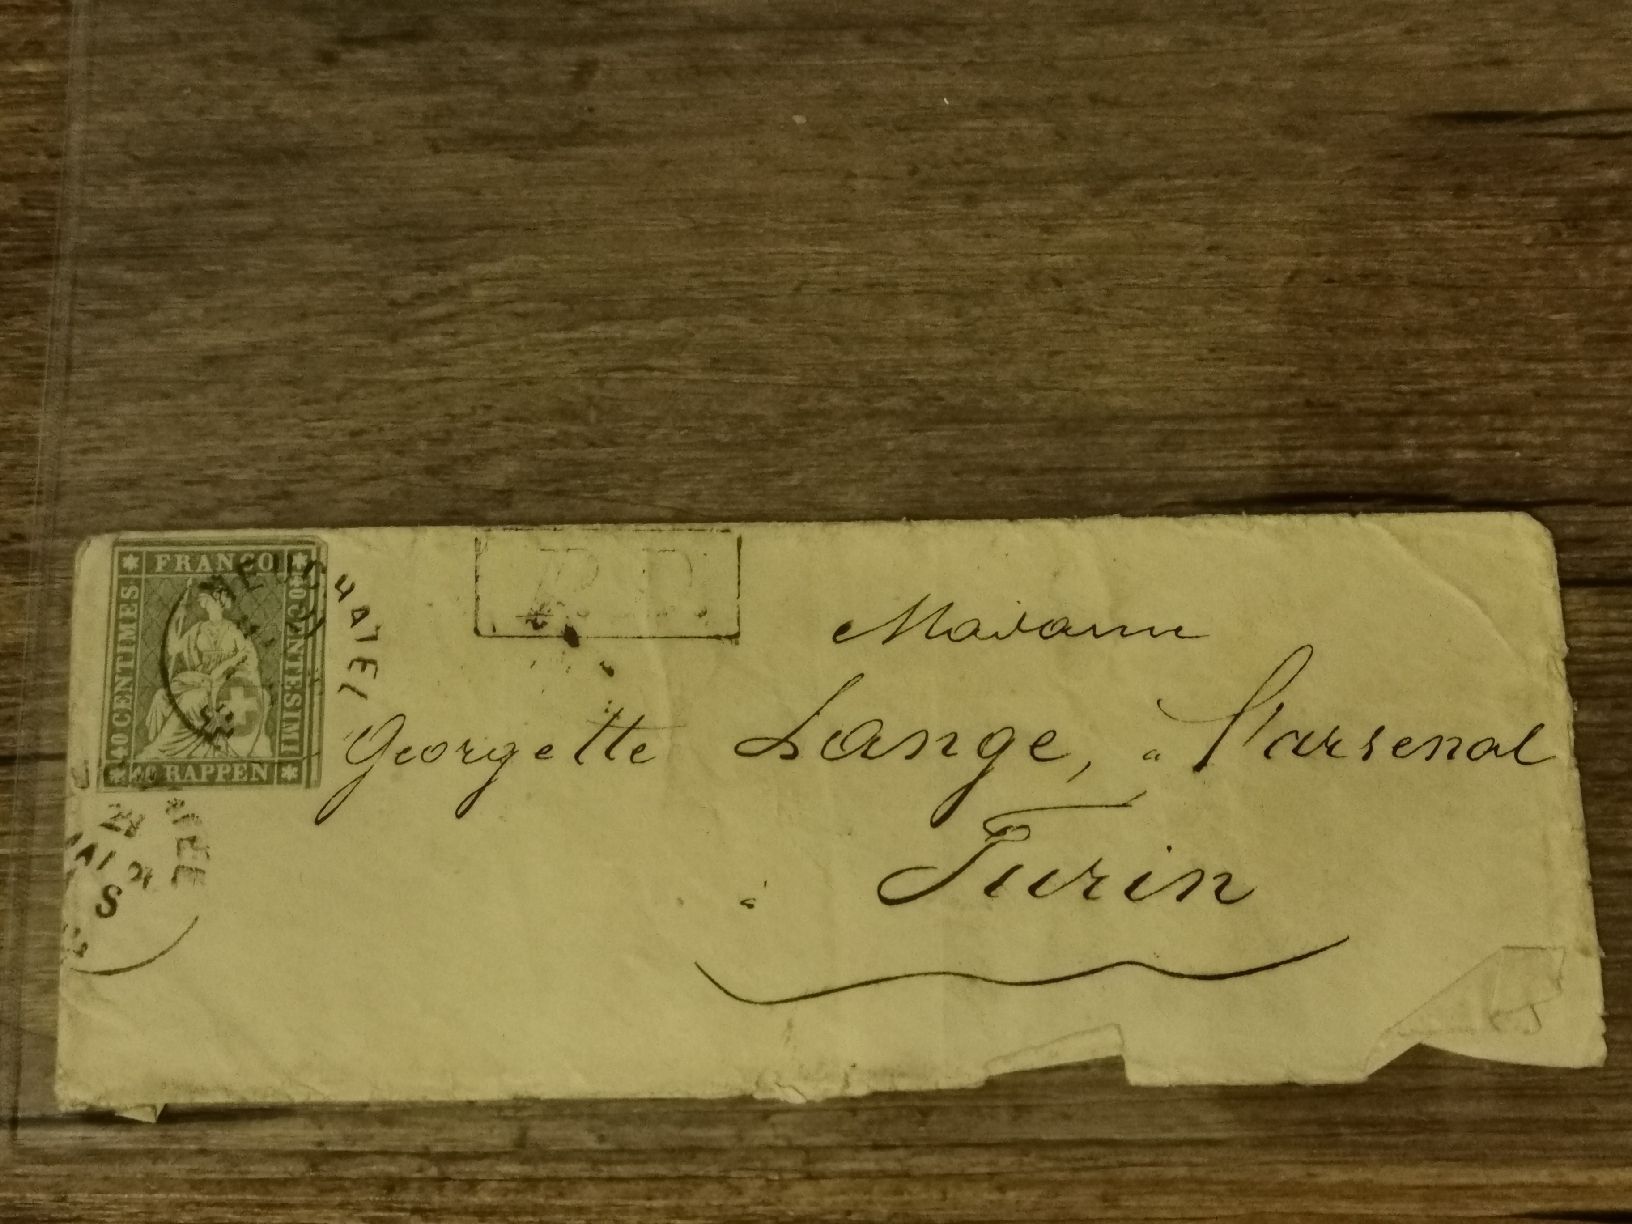 FRANCO
40 CENTIMES
40 CENTESIMI
40 RAPPEN
NEUCHATEL
P.D.
Madame
Georgette Lange, à l'arsenal
à Turin
28
MAI
S